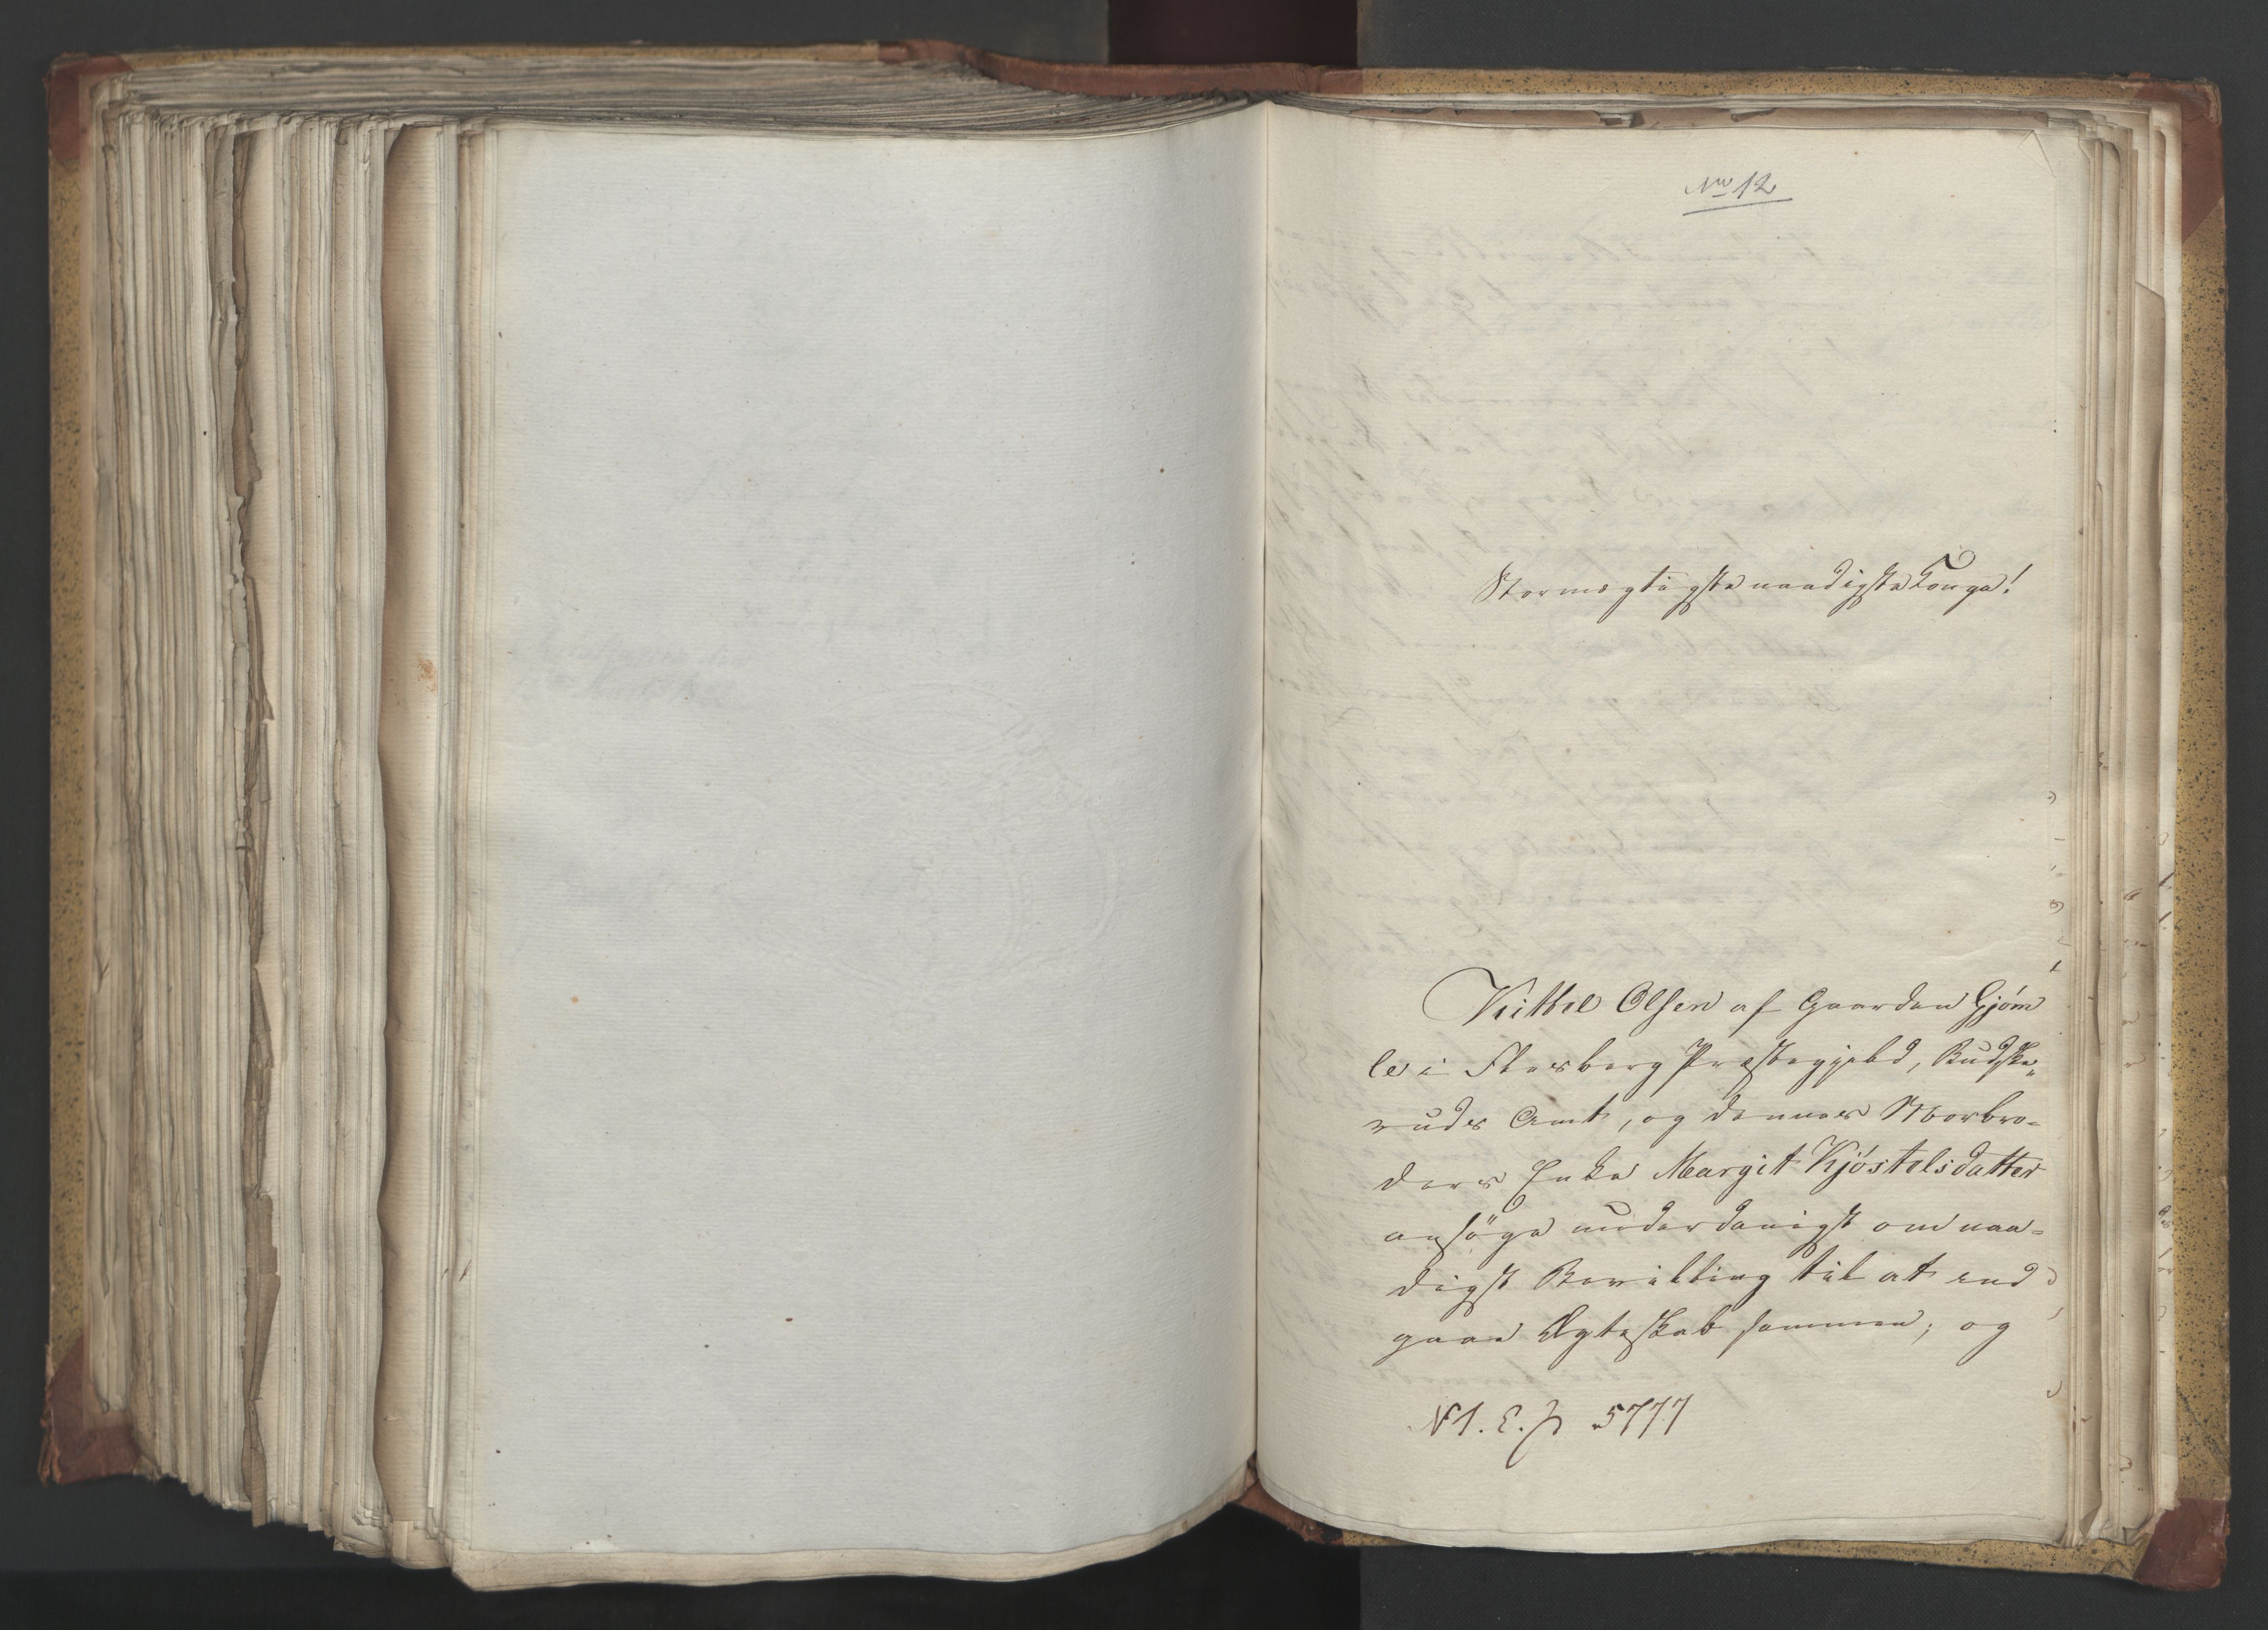 No 12
Stormægtigste naadigste Konge!
Kittel Olsen af Gaarden Gjøm
le i Flesberg Præstegjeld, Budske„
ruds Amt, og dennes Morbro-
ders Enke Margit Kjöstelsdatter
ansöge underdanigst om naa-
digst Bevilling til at ind
gaae Ægteskab sammen; og
N 1. E. 5777